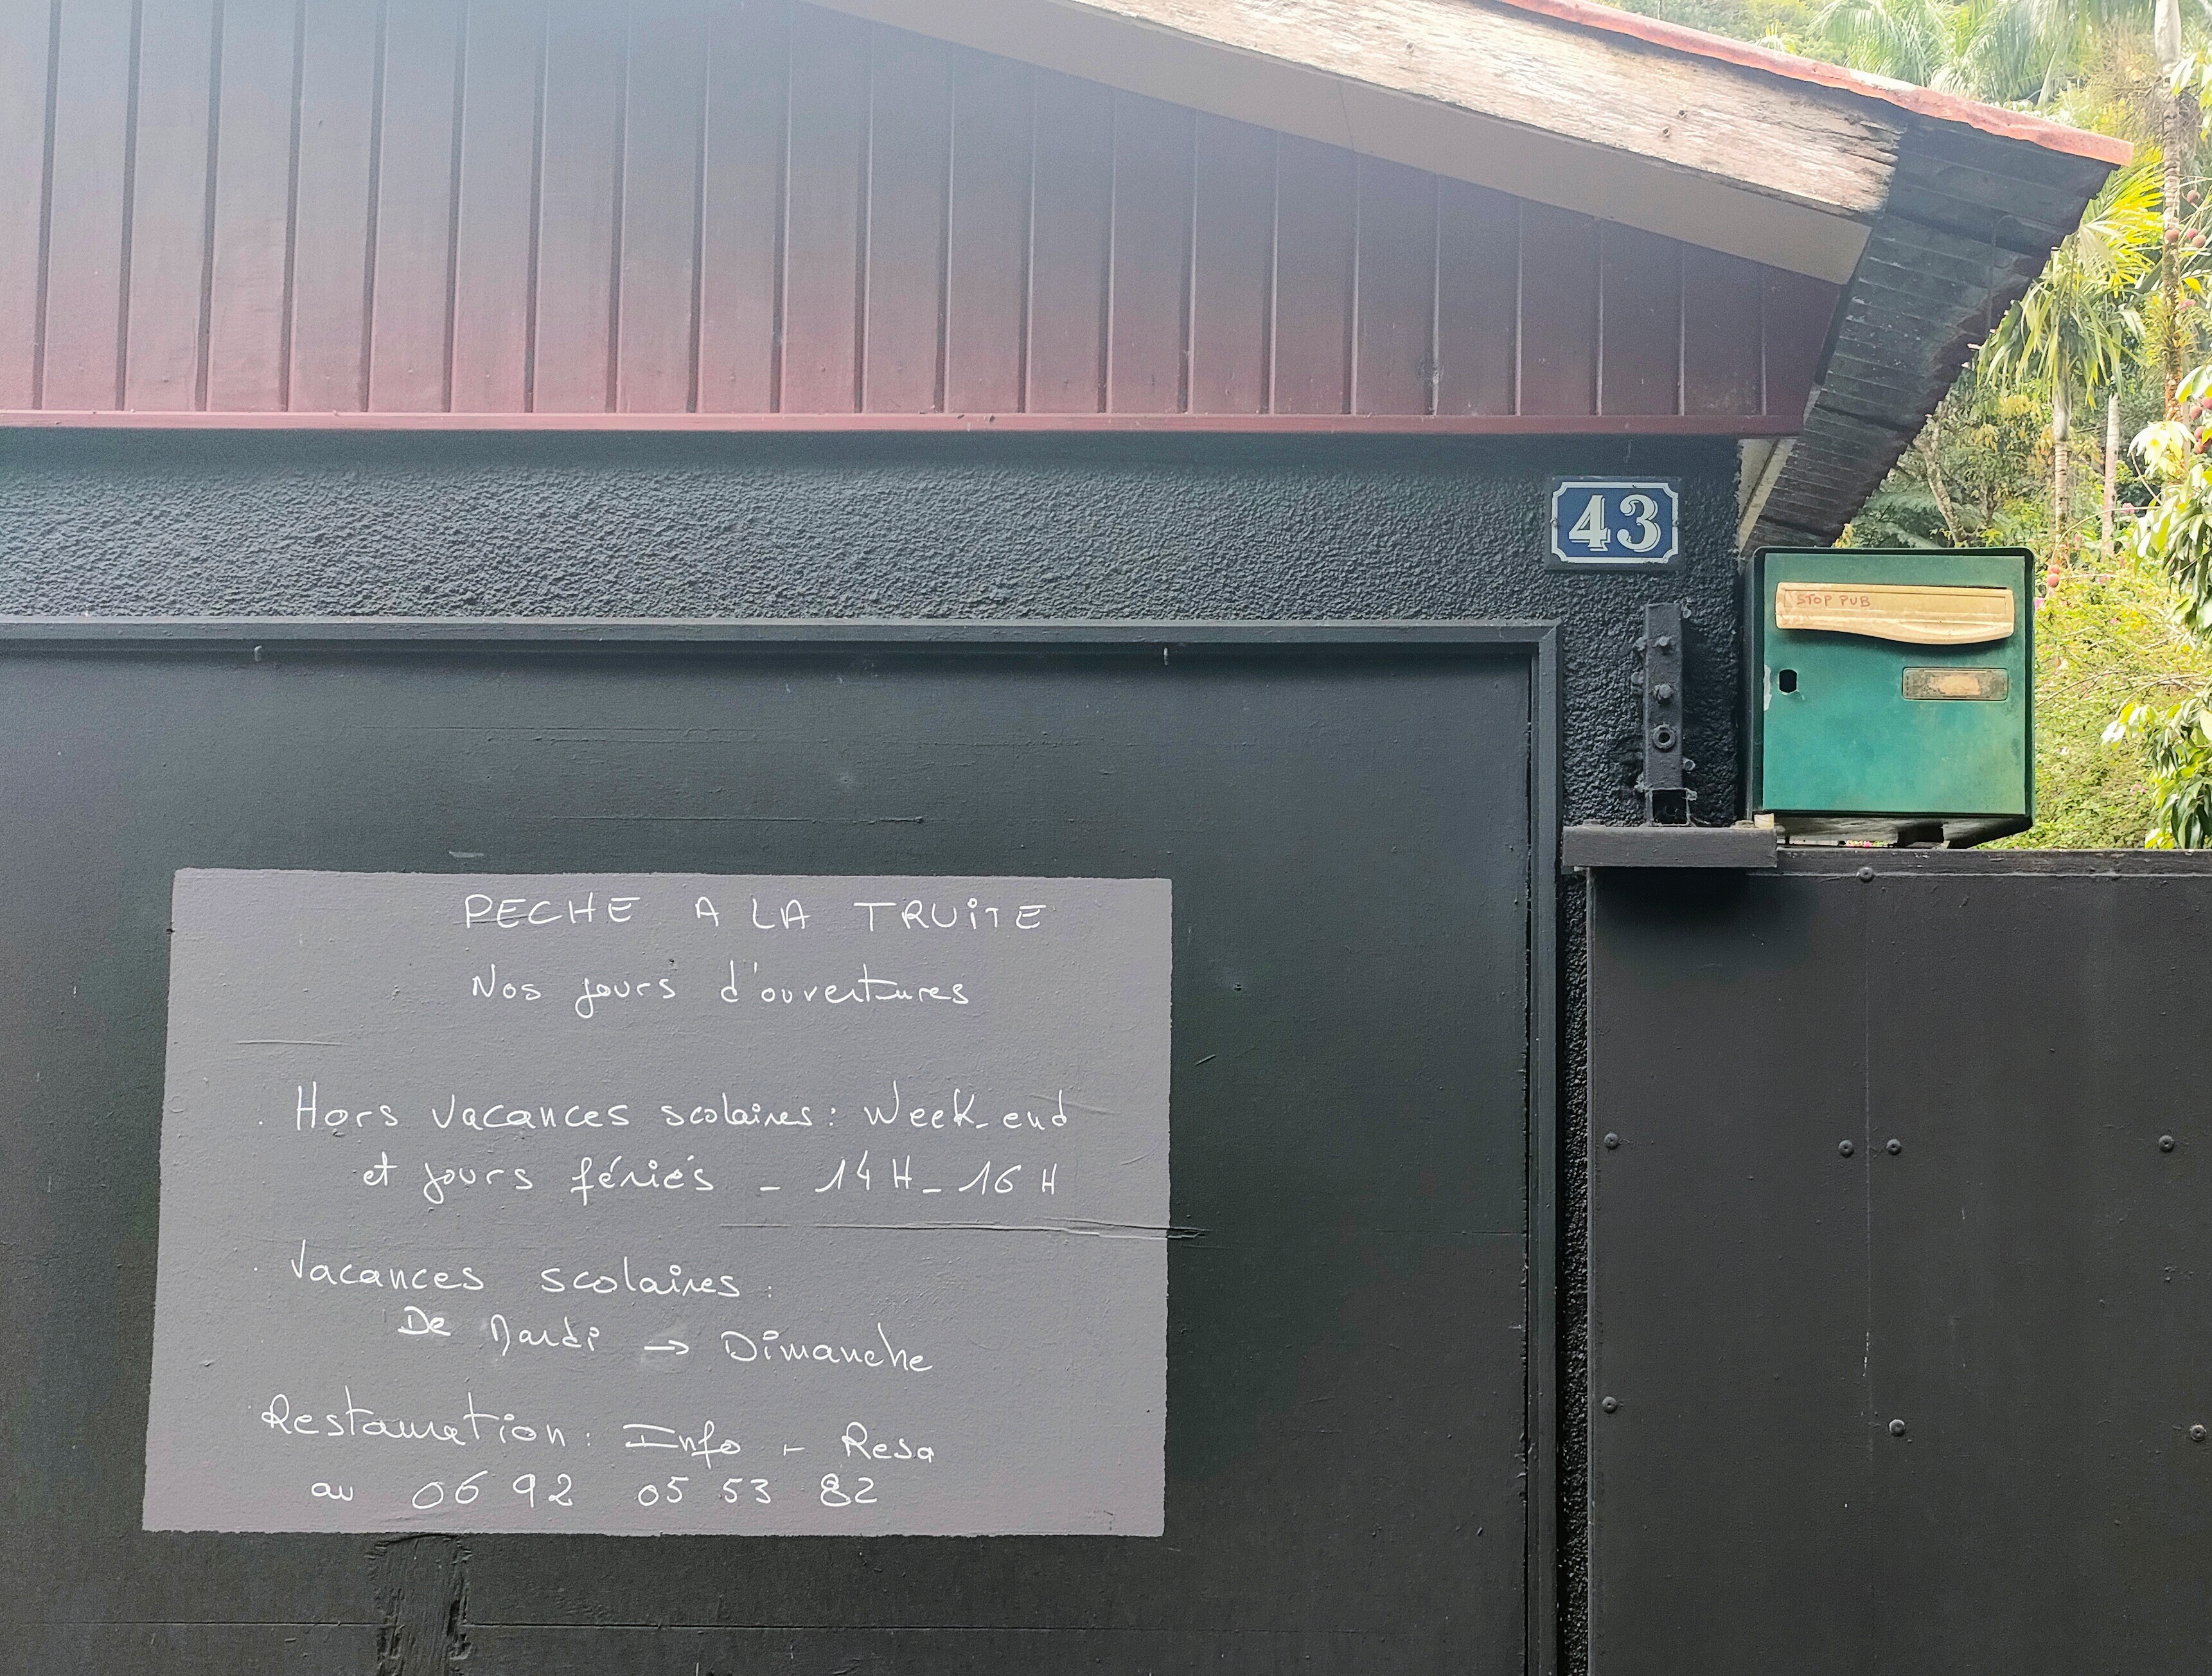 43
STOP PUB
PECHE A LA TRUITE
Nos jours d'ouvertures
. Hors vacances scolaires : Week-end
et jours fériés - 14H - 16H
. Vacances scolaires :
De Mardi → Dimanche
Restauration : Info + Resa
au 06 92 05 53 82